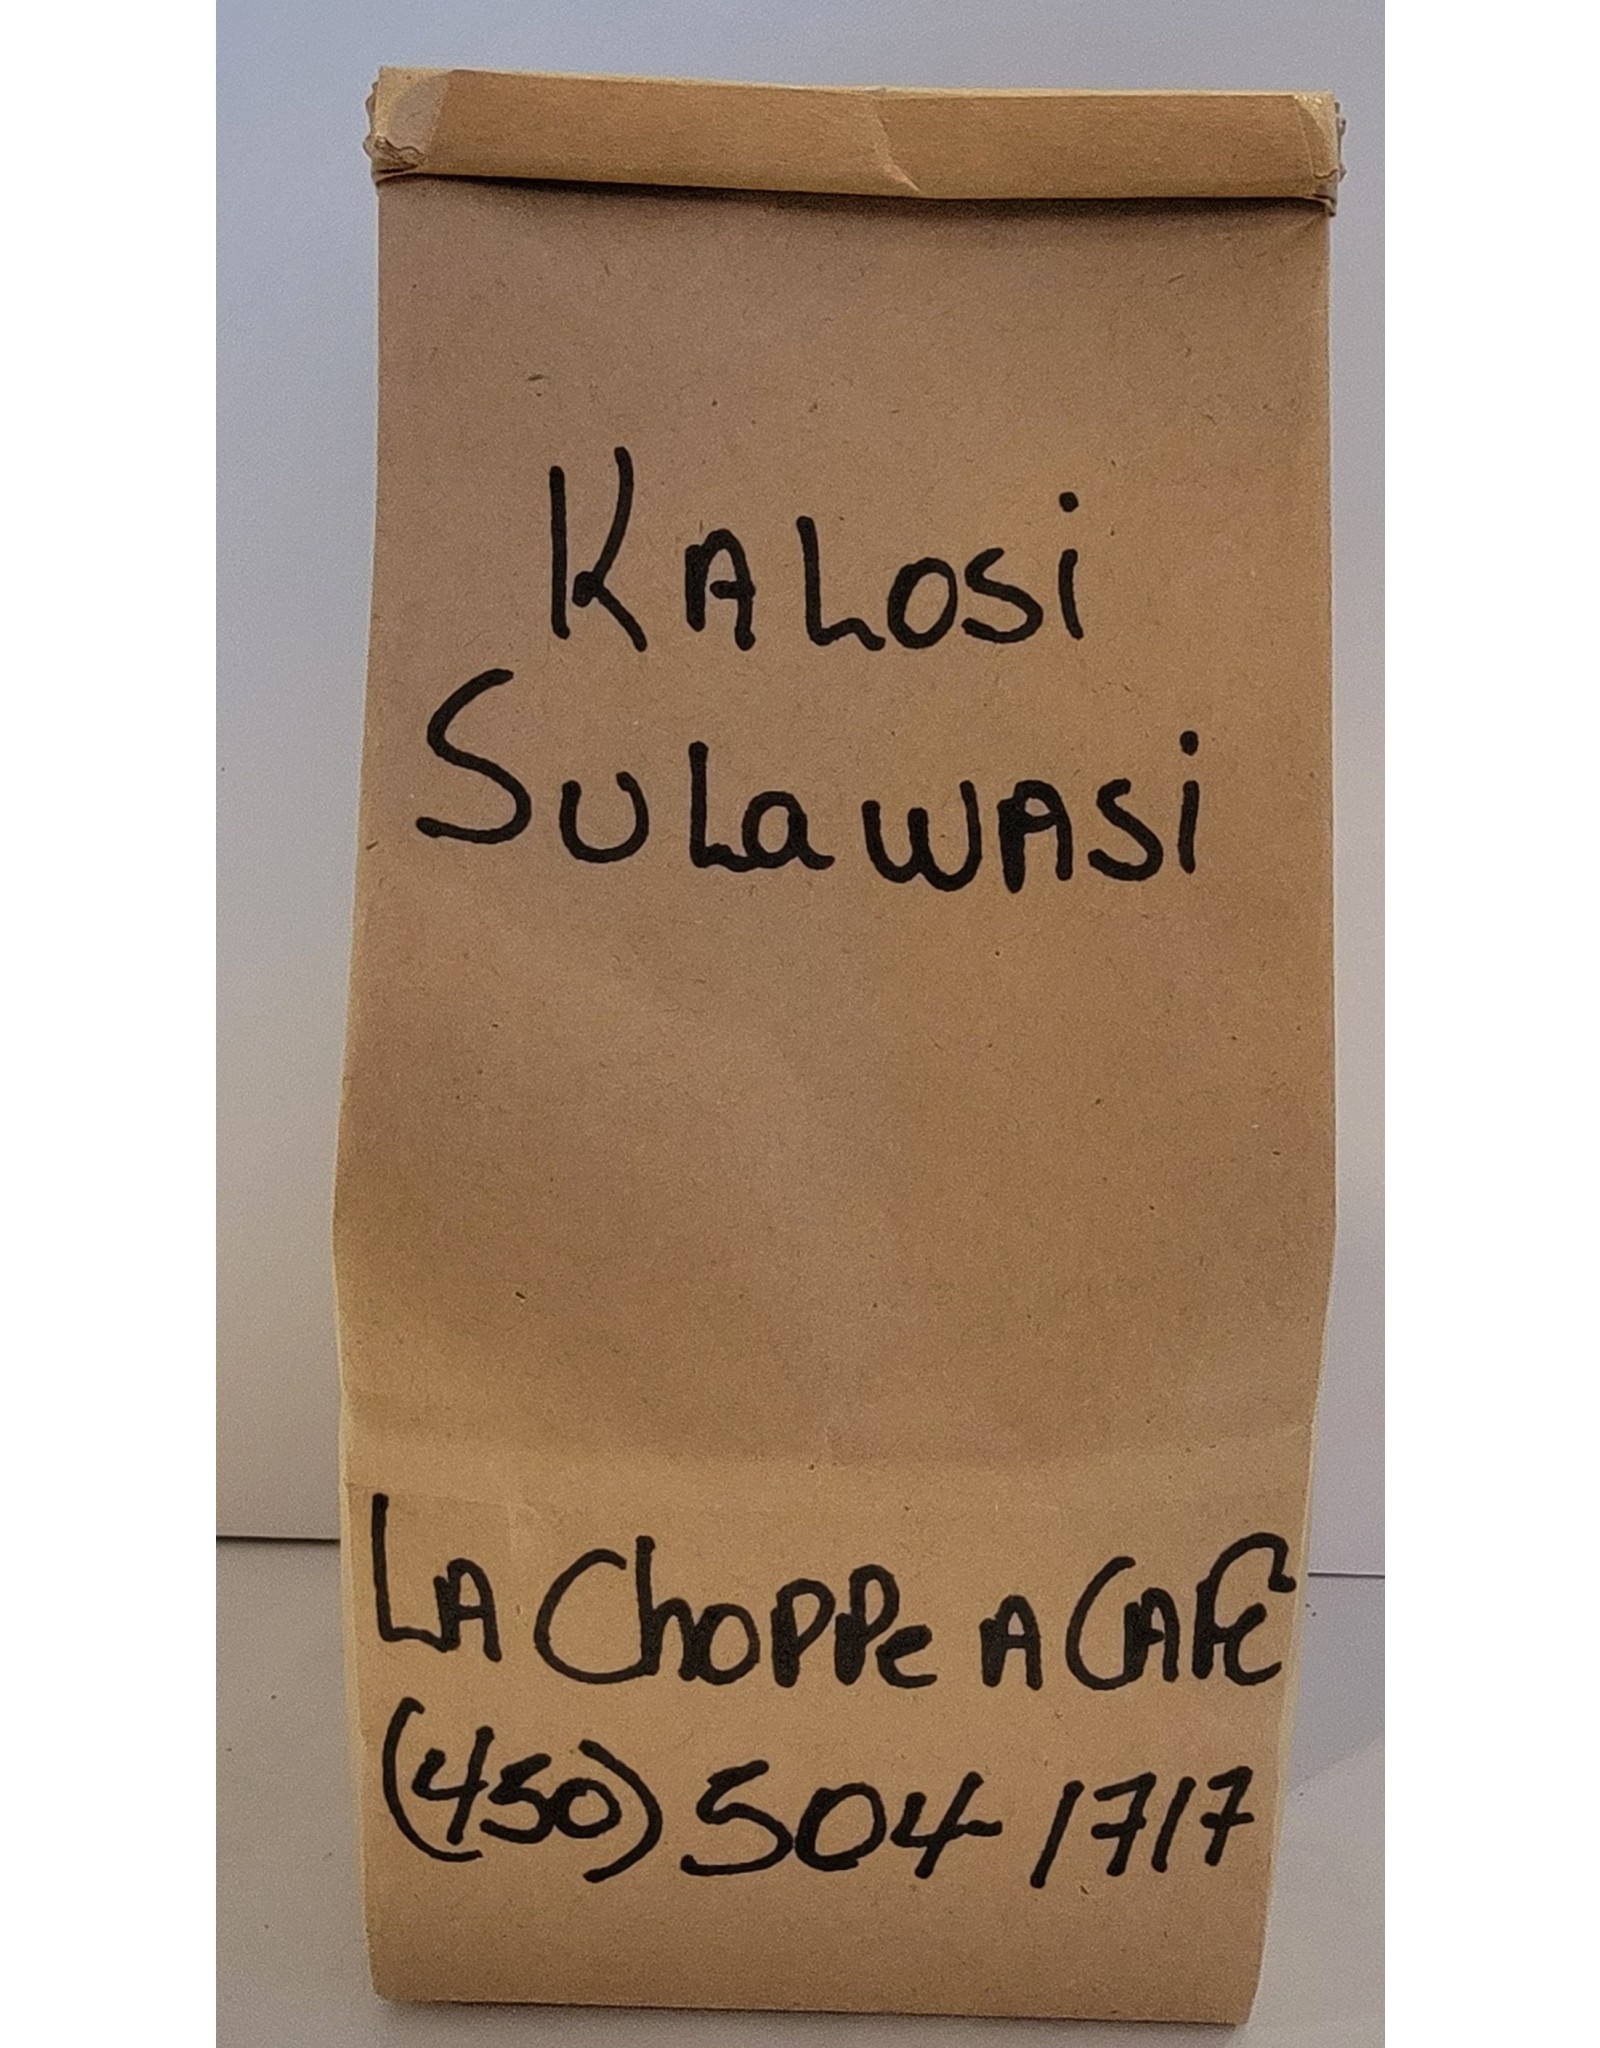 KALOSi
SULaWASi
LA ChOPPe A CAFé
(450) 504-1717